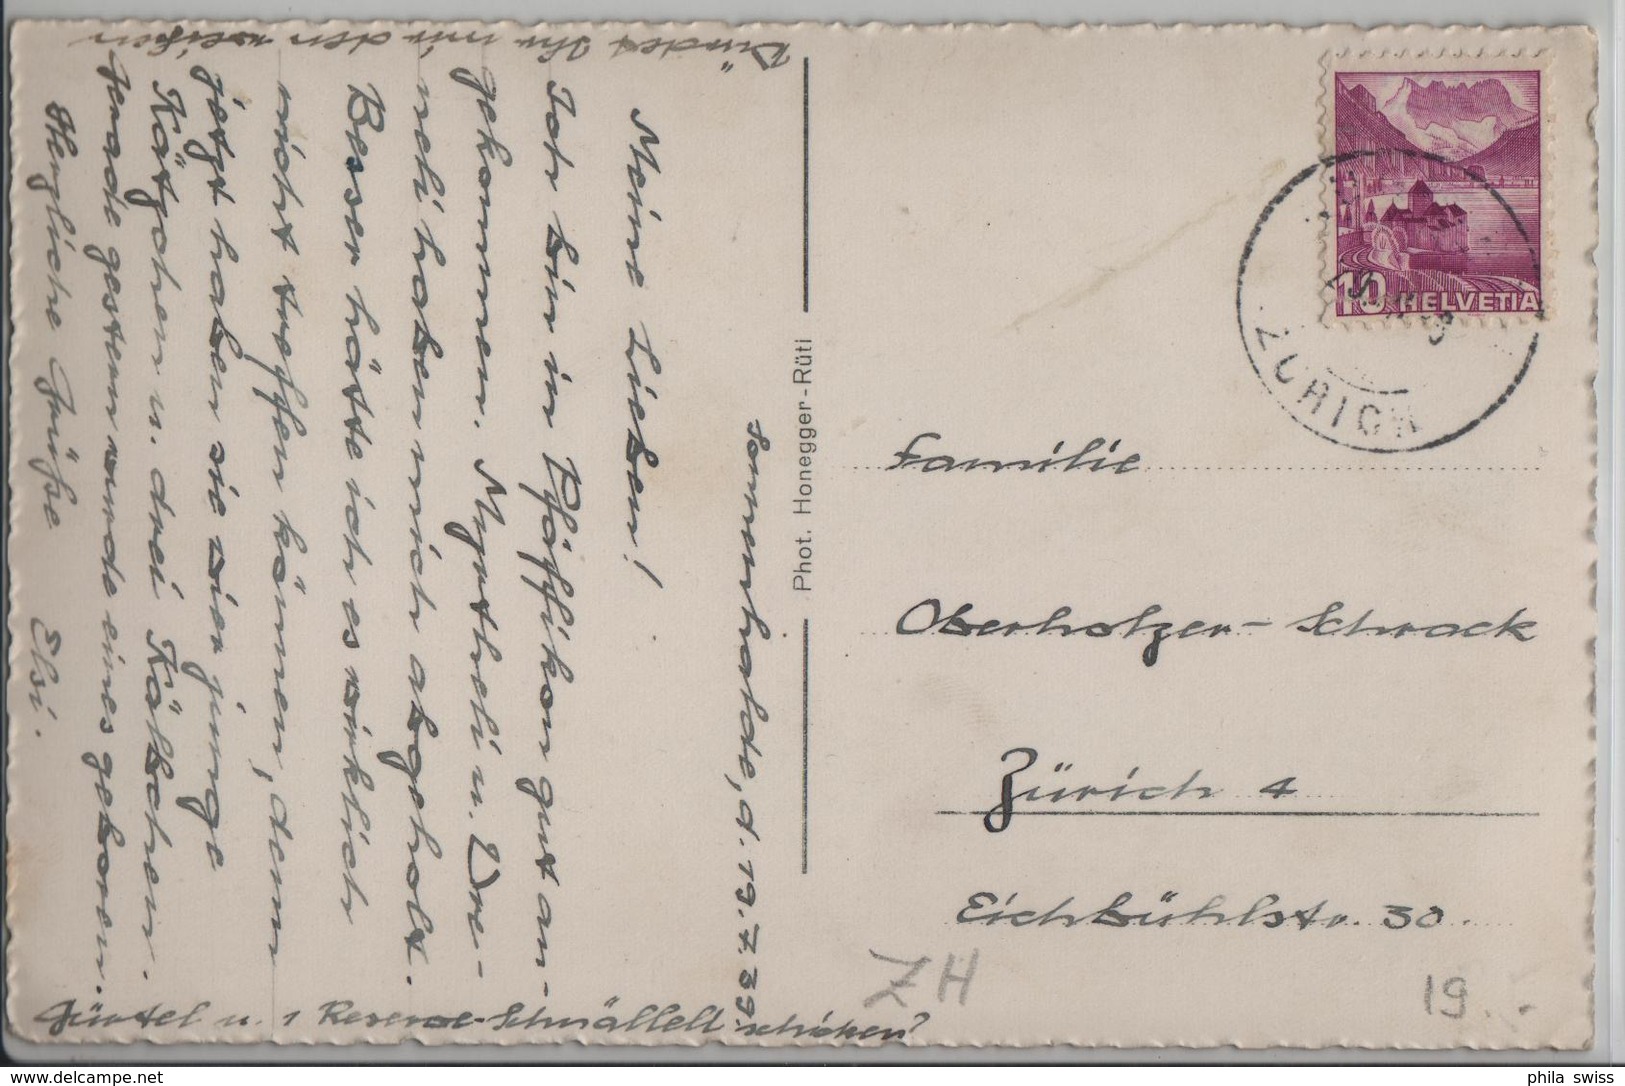 Sonnenhalde, d. 19. 7. 39.
Meine Lieben!
Ich bin in Pfäffikon gut an-
gekommen. Myrtheli u. Vre-
neli haben mich abgeholt.
Besser hätte ich es wirklich
nicht treffen können, denn
jetzt haben sie vier junge
Kätzchen u. drei Kälbchen.
Gerade gestern wurde eines geboren.
Herzliche Grüße Elsi.
Würdet Ihr mir den weißen
Gürtel u. 1 Reserve-Schnälleli schicken?
Phot. Honegger-Rüti
10 HELVETIA
ZÜRICH
Familie
Oberholzer-Schrack
Zürich 4
Eichbühlstr. 30.
ZH
19.-
phila swiss